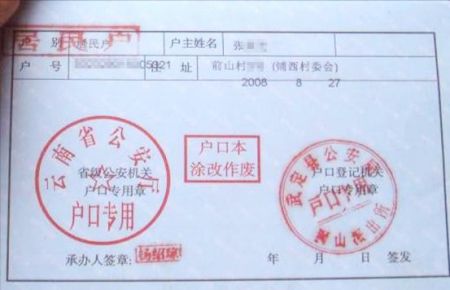 居民户
户 别 居民户 户主姓名 张
户 号 05021 住 址 前山村 (铺西村委会)
2008 8 27
云南省公安厅
户口专用
省级公安机关
户口专用章
户口本
涂改作废
安定县公安局
户口专用
山派出所
户口登记机关
户口专用章
承办人签章: 年 月 日 签发